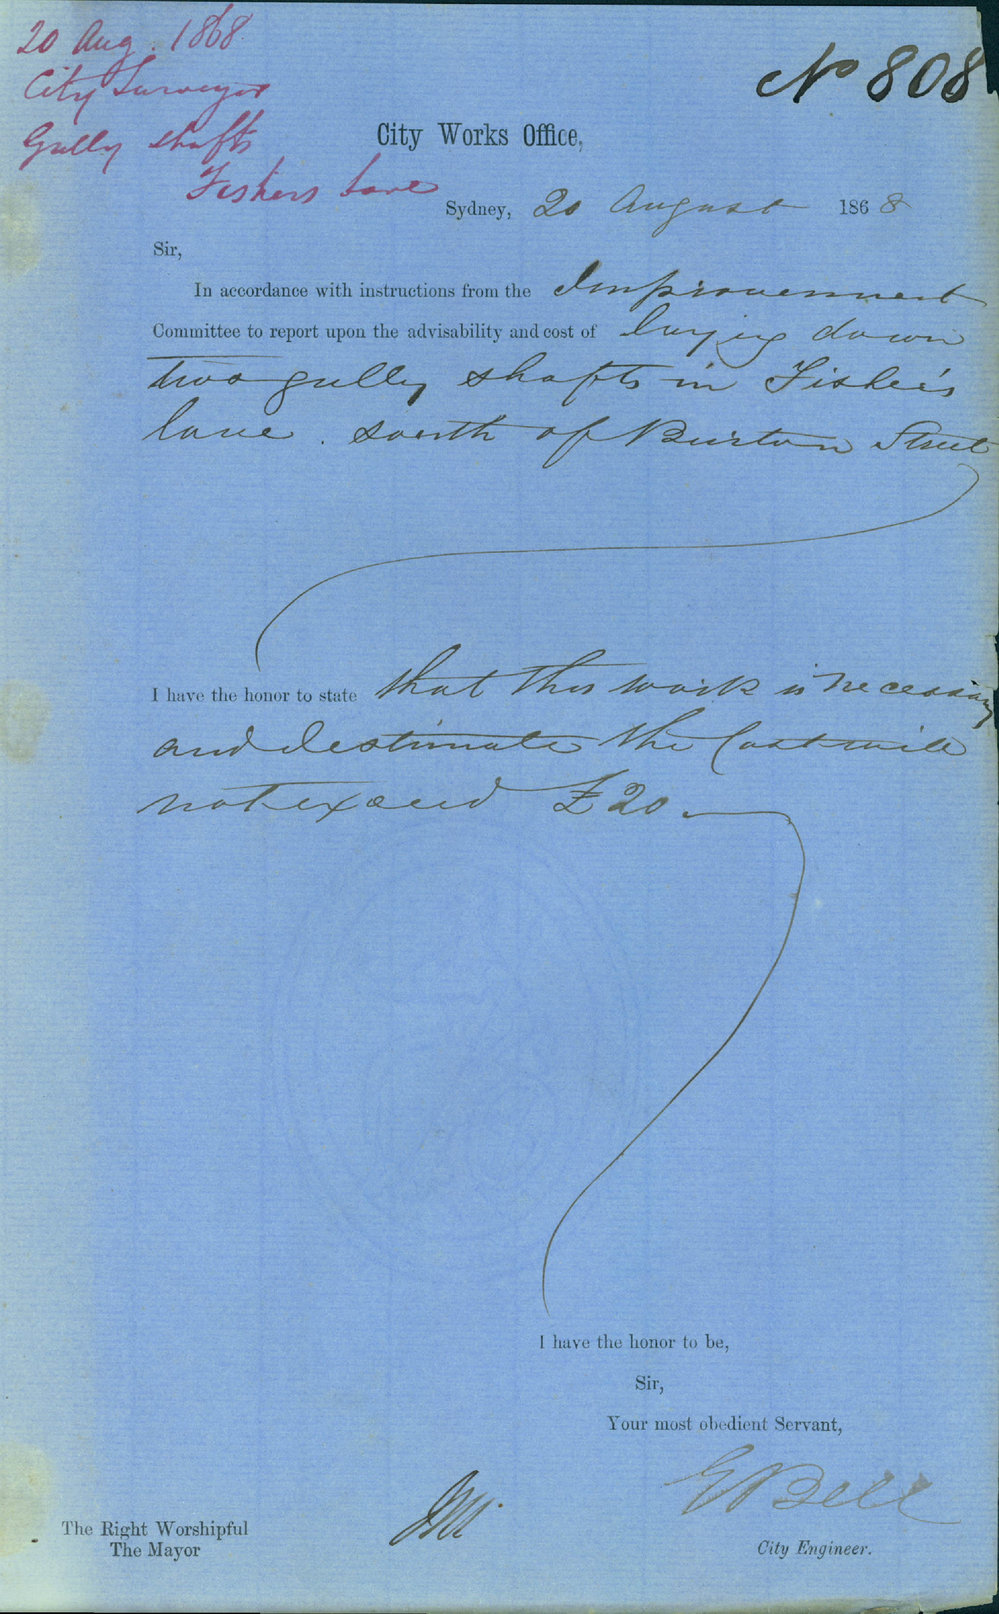 20 Aug. 1868
City Surveyor
Gully shafts
Fishers Lane
No 808
City Works Office,
Sydney, 20 August 1868
Sir,
In accordance with instructions from the Improvement
Committee to report upon the advisability and cost of laying down
two gully shafts in Fisher's
lane. South of Burton Street
I have the honor to state that this work is necessary
and I estimate the Cost will
not exceed £20.
I have the honor to be,
Sir,
Your most obedient Servant,
E Bell
The Right Worshipful
The Mayor
City Engineer.